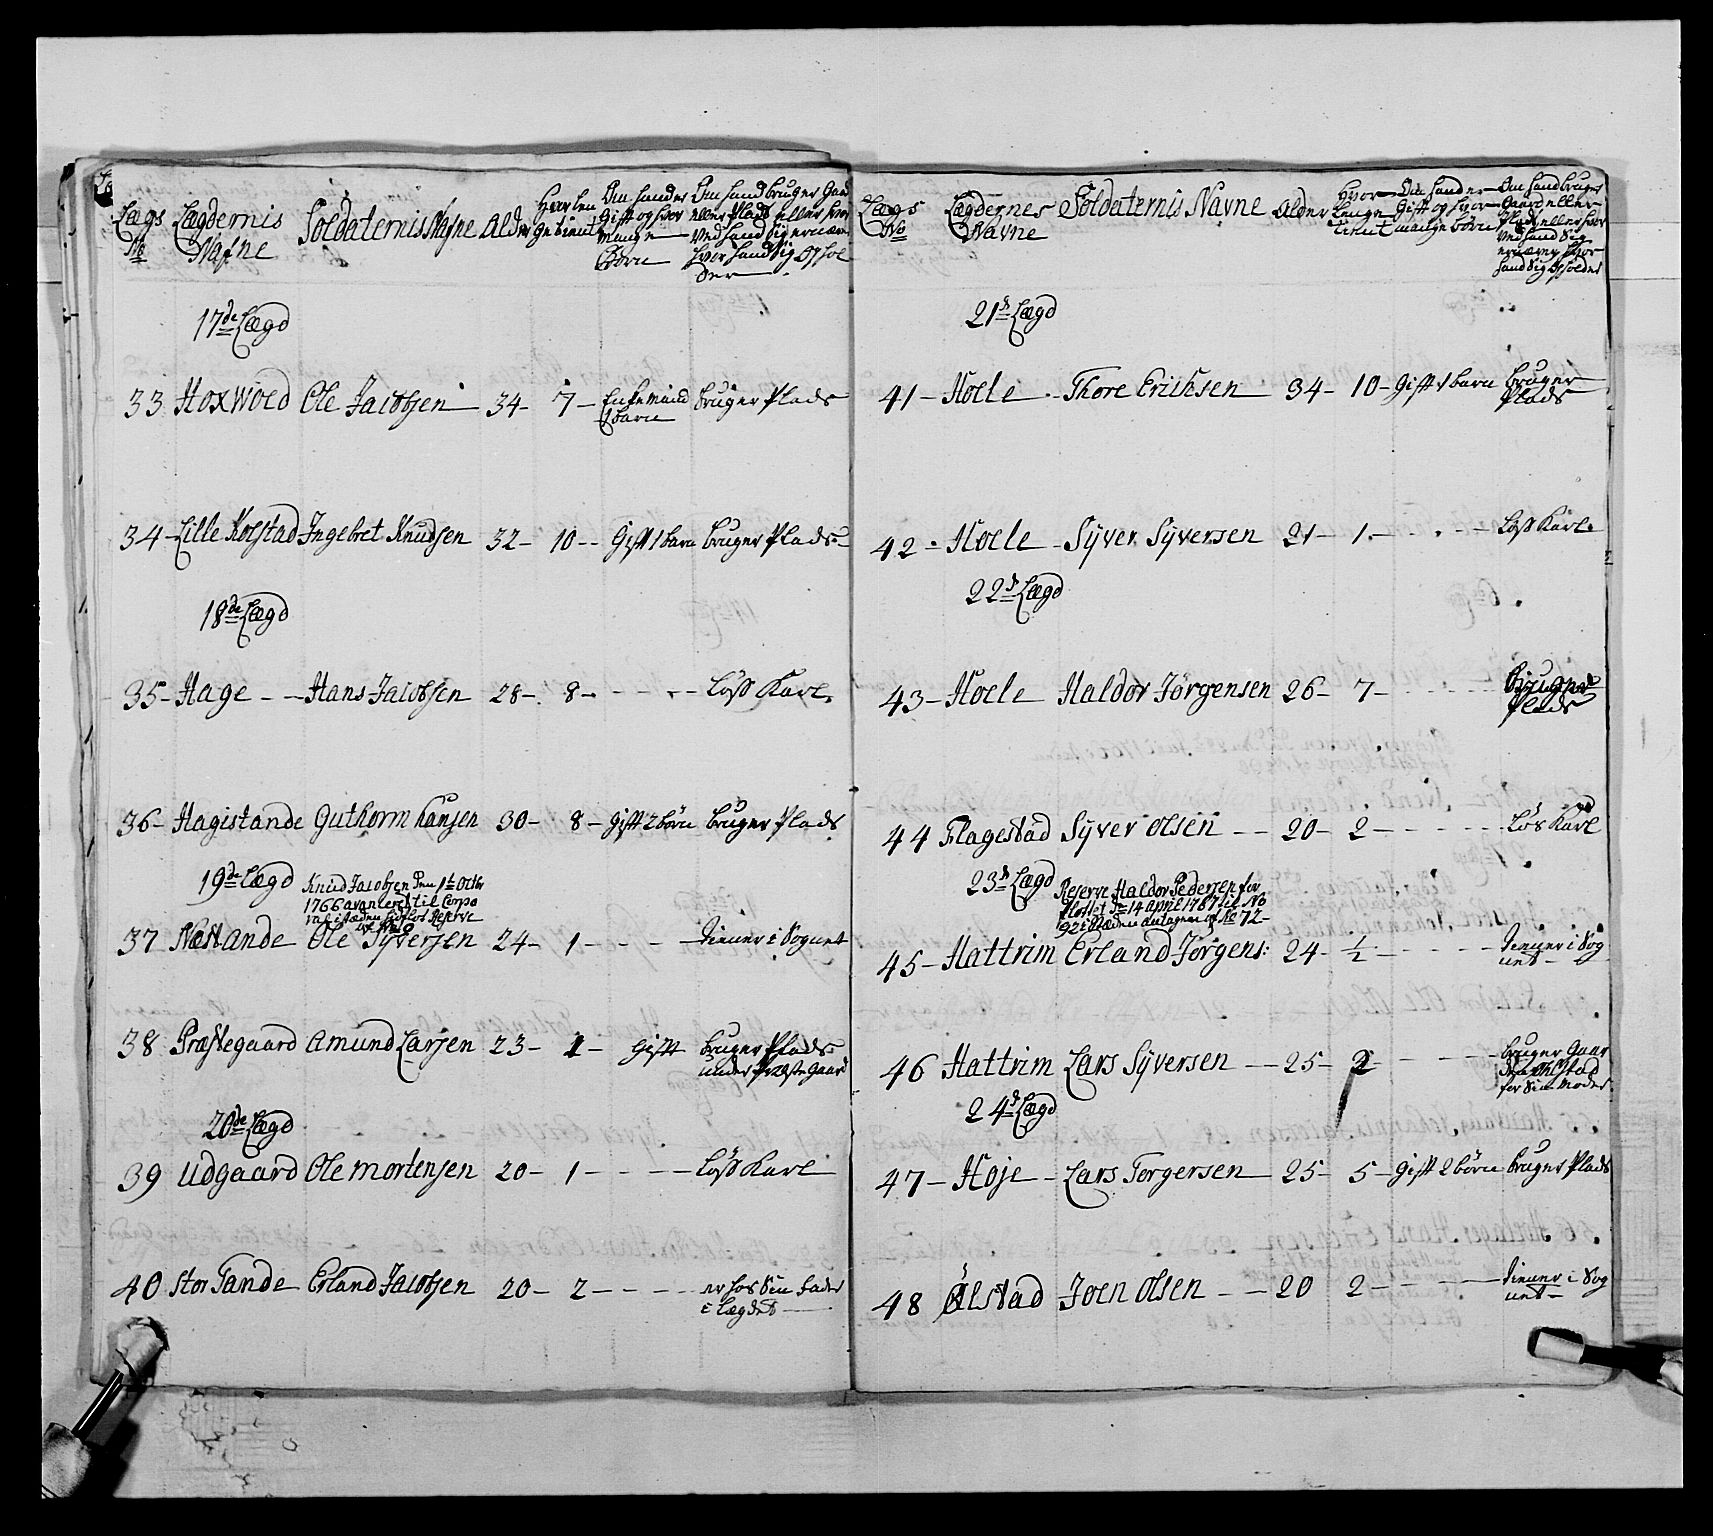 Lægs No Lægdernis Nafne Soldaternis Nafne Alder Hvor længe tient Om hand er Gift og hvor mange Børn Om hand bruger Gaard eller Plads eller hvor ved hand sig ernærer hvor hand sig opholder
17de Lægd
33 Hoxwold Ole Jacobsen 34 7 Enkemand 1 barn bruger Plads
34 Lille Kolstad Ingebret Knudsen 32 10 Gift 1 barn bruger Plads
18de Lægd
35 Hage Hans Jacobsen 28 8 Løss Karl
36 Hagistande Guthorm Hansen 30 8 Gift 2 børn bruger Plads
19de Lægd
Knud Jacobsen den 1te Octbr
1766 avancerct til Corpo
ral i stæden
37 Næstande Ole Syversen 24 1 tiener i Sognet
38 Præstegaard Amund Larsen 23 1 Gift bruger Plads
under Præste Gaard
20de Lægd
39 Udgaard Ole Mortensen 20 1 Løss Karl
40 Stor Tande Erland Jacobsen 20 2 er hos Sin Fader
i Lægdet
Lægs No Lægdernes Navne Soldaternis Navne Alder Hvor længe tient Om hand er Gift og hvor mange børn Om hand bruger Gaard eller Plads eller hvor ved hand sig ernærer hvor hand sig opholder
21de Lægd
41 Hoele Thore Erichsen 34 10 Gift 1 barn bruger
Plads
42 Hoele Syver Syversen 21 1 Løss Karl
22de Lægd
43 Hoele Haldor Jørgensen 26 7 Bruger
Plads
44 Flagestad Syver Olsen 20 2 Løs Karl
23de Lægd
Reserve Haldor Pedersen for
Flöttet d. 14 April 1767 til No
92 i stæden antagen af No 72
45 Hattrim Erland Jørgens: 24 1/2 tiener i Sog
net
46 Hattrim Lars Syversen 25 2 bruger Gaar
for Sin Moder
24de Lægd
47 Høje Lars Torgersen 25 5 Gift 2 børn bruger Plads
48 Ølstad Joen Olsen 20 2 tiener i Sog
net